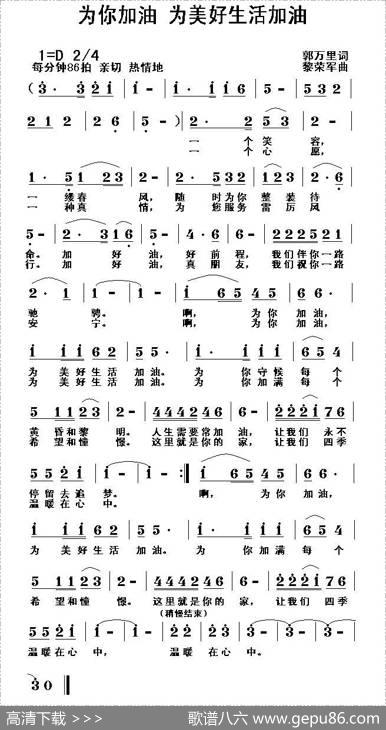 为你加油 为美好生活加油
1=D 2/4
郭万里词
每分钟86拍 亲切 热情地
黎荣军曲
(3· 321 | 1· 163 | 5- | 532 |
212 | 6- | 5-) | 2· 2 | 53 |
一个笑容,
一个心愿,
1· 5 | 123 | 2- | 2· 532 | 123 | 2·6 |
一缕春风,随时为你整装待
一种真情,为您服务雷厉风
5- | 2· 316 | 5- | 4·6 | 6- | 222521 |
命。加好油,好前程,我们伴你一路
行。加好油,真朋友,我们祝你一路
2·1 | 1- | 1- | 1 6545 | 545 | 66· |
驰骋。啊,为你加油,
安宁。啊,为你加油,
1 1162 | 55· | 1· 11 | 16 | 654 |
为美好生活加油。为你守候每个
为美好生活加油。为你加满每个
5 1123 | 2- | 444246 | 6- | 2221 | 76 |
黄昏和黎明。人生需要常加油,让我们永不
希望和憧憬。这里就是你的家,让我们四季
5521 | 2·1 | 1- | 1- :‖ 1 6545 | 545 | 66· |
停留去追梦。啊,为你加油,
温暖在心中。
1 1162 | 55· | 1· 11 | 16 | 654 |
为美好生活加油。为你加满每个
5 1123 | 2- | 444246 | 6- | 2221 | 76 |
希望和憧憬。这里就是你的家,让我们四季
(稍慢结束)
5521 | 2·1 | 1- | 5521 | 2 3 | 1- | 1- |
温暖在心中,温暖在心。
30 ‖
高清下载 >>>
歌谱八六 www.gepu86.com